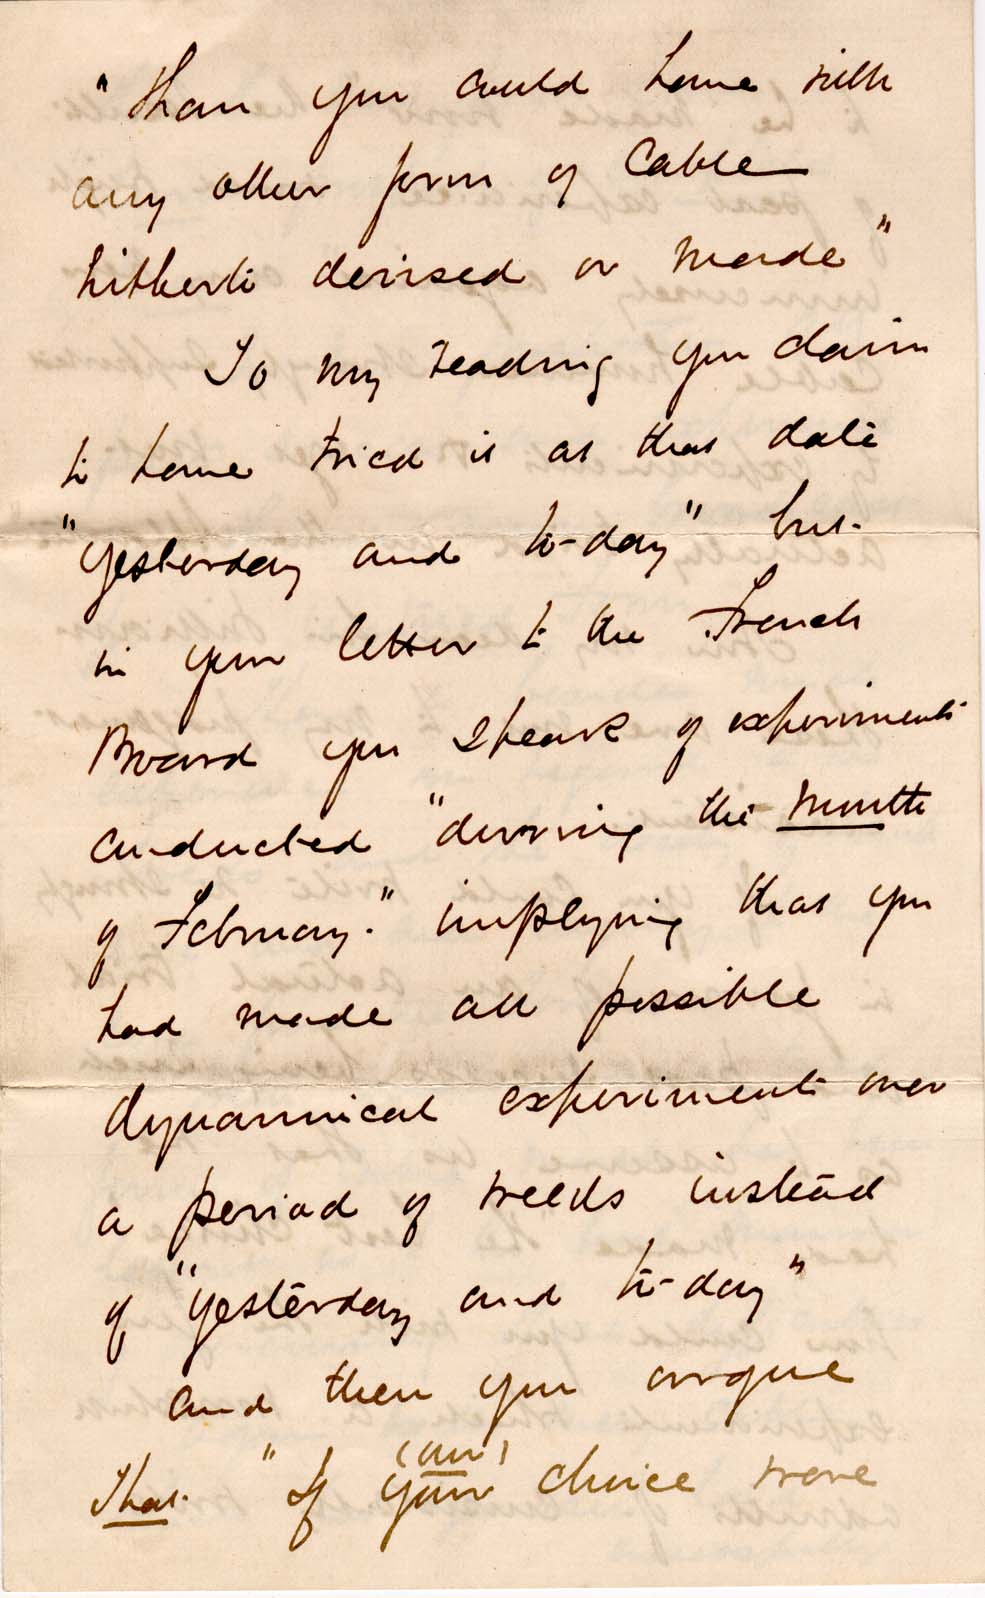 "than you could have with
any other form of Cable
hitherto devised or made"
To my reading you claim
to have tried it at that date
"yesterday and to-day" but
in your letter to the French
Board you speak of experiments
conducted "during the month
of February." implying that you
had made all possible
dynamical experiments over
a period of weeks instead
of "yesterday and to-day"
and then you argue
that "If your (our) choice were